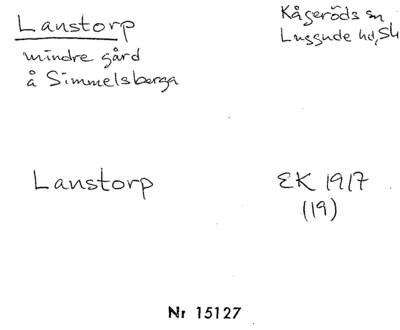 Lanstorp
mindre gård
å Simmelsberga
Kågeröds sn
Luggude hd, Sk
Lanstorp
EK 1917
(19)
Nr 15127